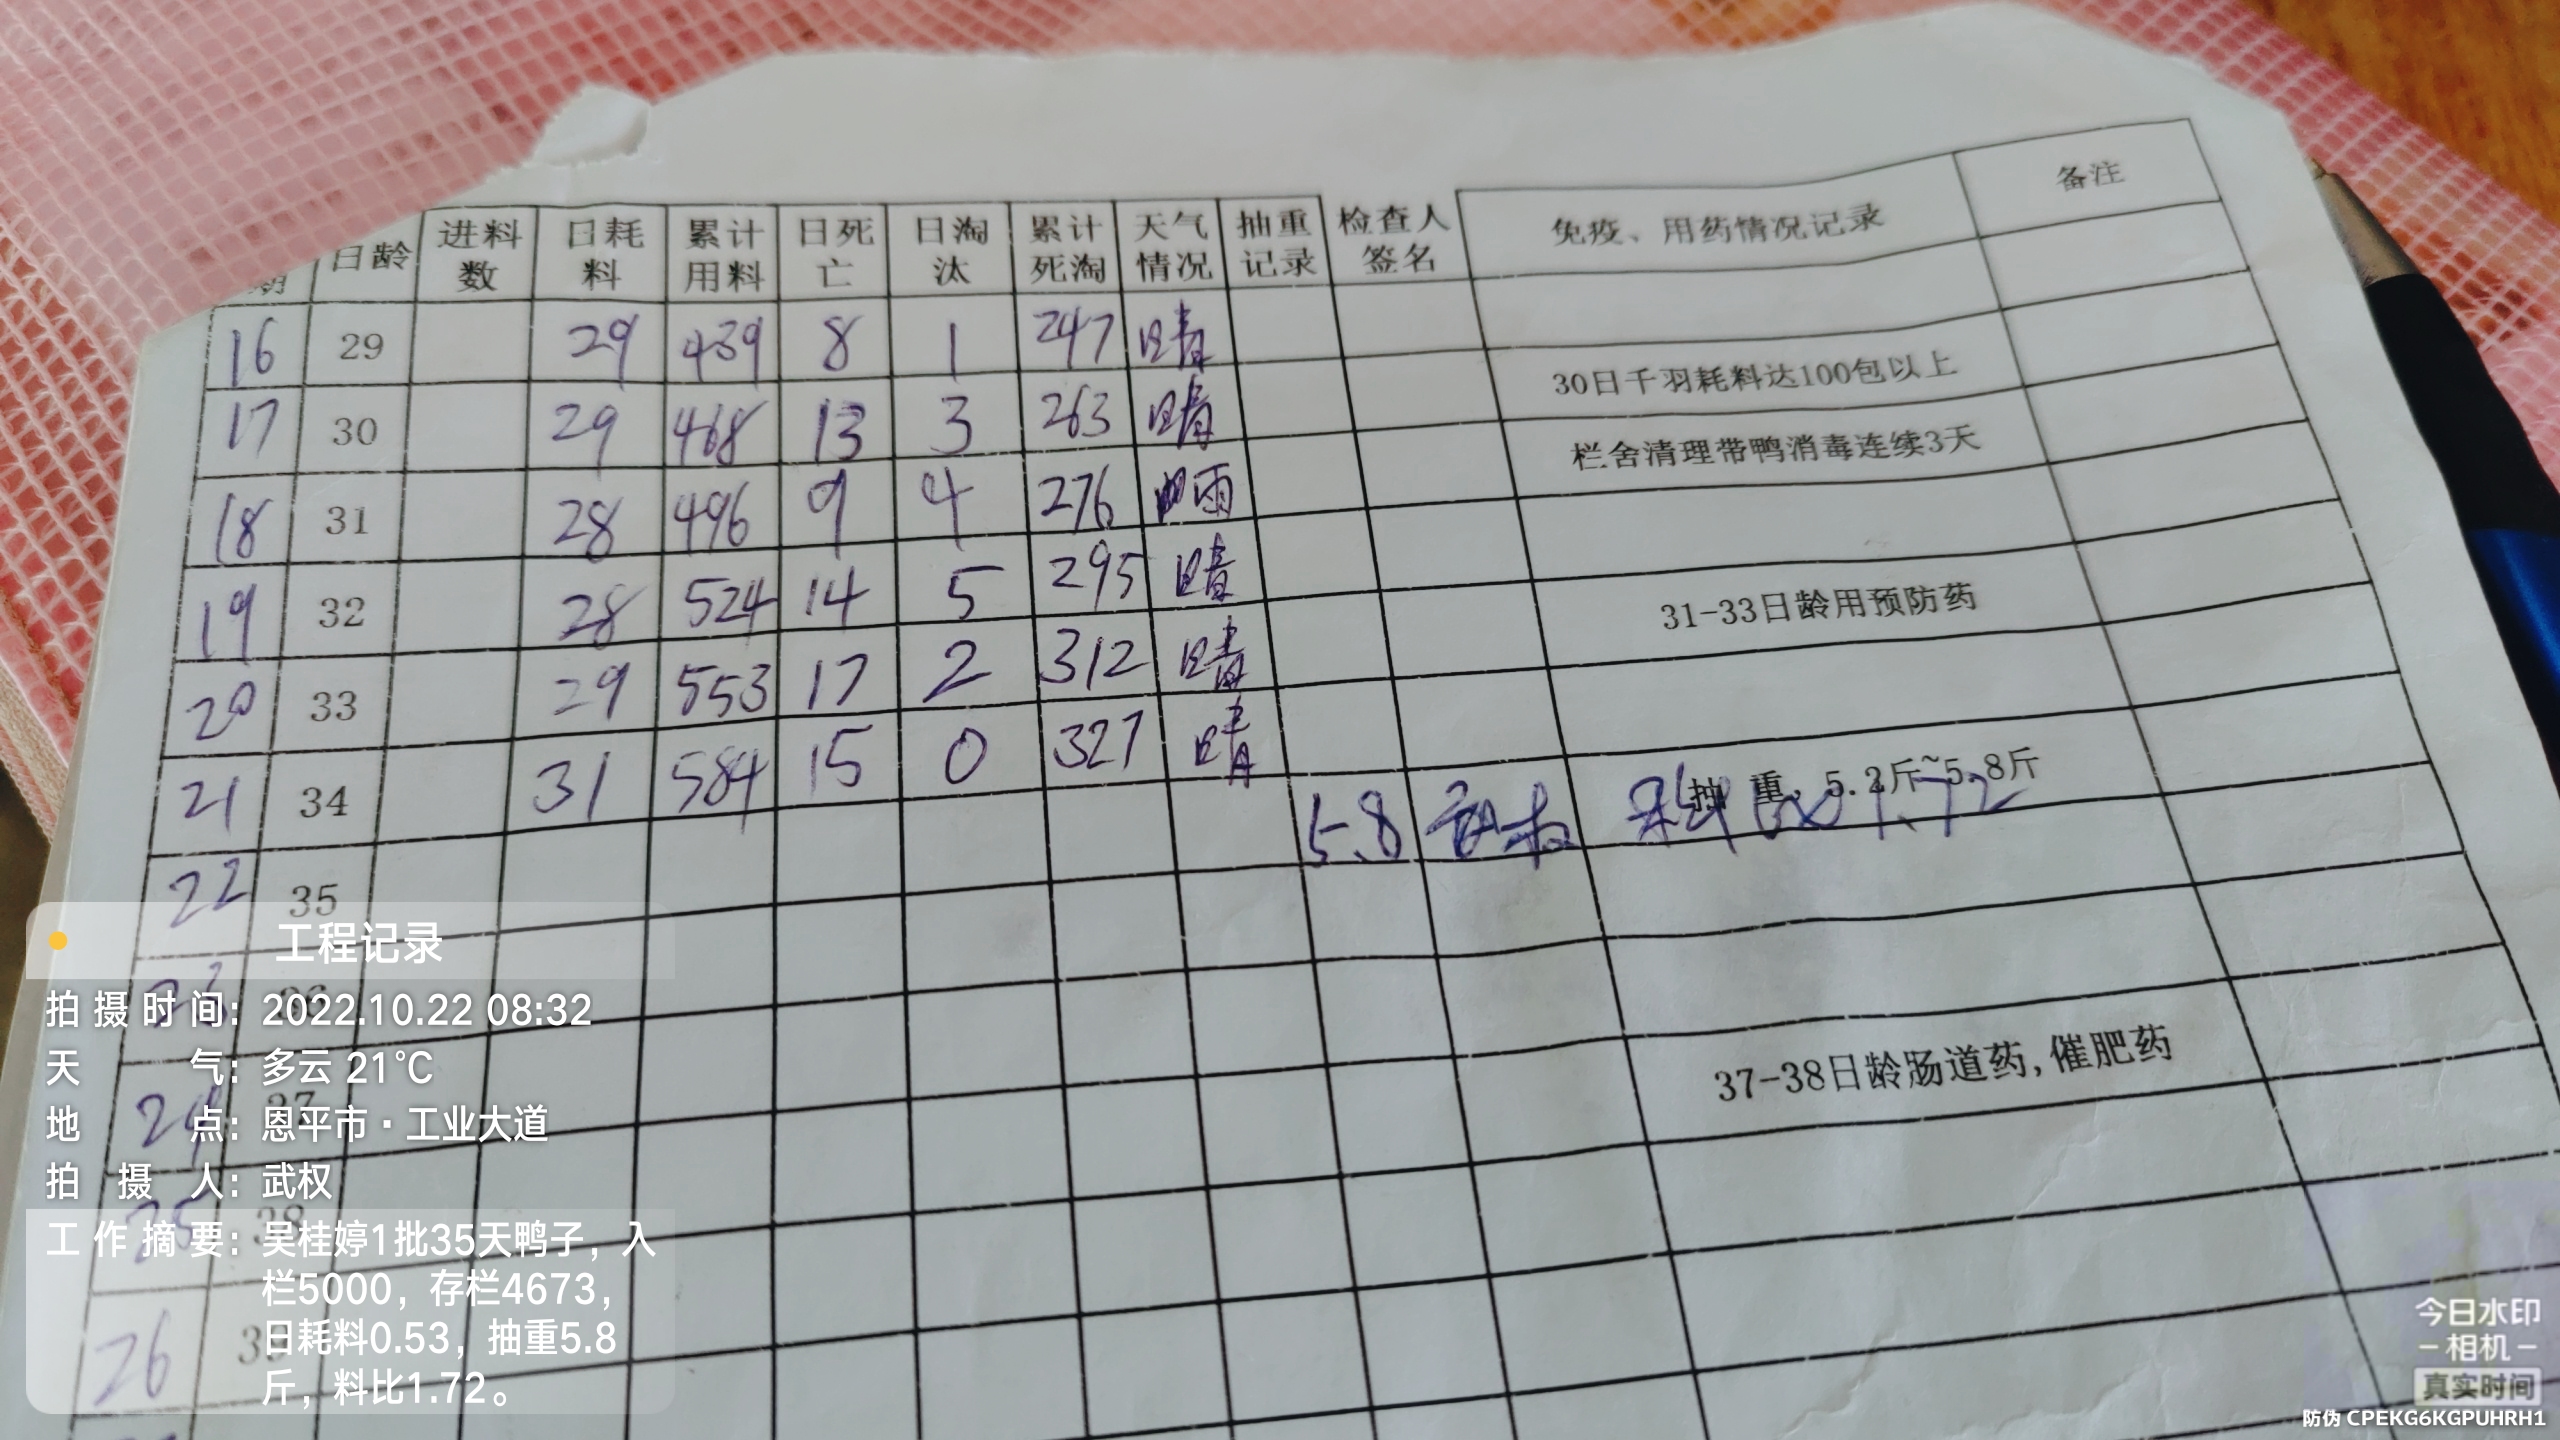 期 日龄 进料数 日耗料 累计用料 日死亡 日淘汰 累计死淘 天气情况 抽重记录 检查人签名 免疫、用药情况记录 备注
16 29 29 439 8 1 247 晴
17 30 29 468 13 3 263 晴 30日千羽耗料达100包以上
18 31 28 496 9 4 276 雨 栏舍清理带鸭消毒连续3天
19 32 28 524 14 5 295 晴
20 33 29 553 17 2 312 晴 31-33日龄用预防药
21 34 31 584 15 0 327 晴
22 35 5.8 武权 抽重,5.2斤~5.8斤 料比1.72
23 36
24 37 37-38日龄肠道药,催肥药
25 38
26
工程记录
拍摄时间:2022.10.22 08:32
天气:多云 21℃
地点:恩平市·工业大道
拍摄人:武权
工作摘要:吴桂婷1批35天鸭子,入
栏5000,存栏4673,
日耗料0.53,抽重5.8
斤,料比1.72。
今日水印
-相机-
真实时间
防伪 CPEKG6KGPUHRH1